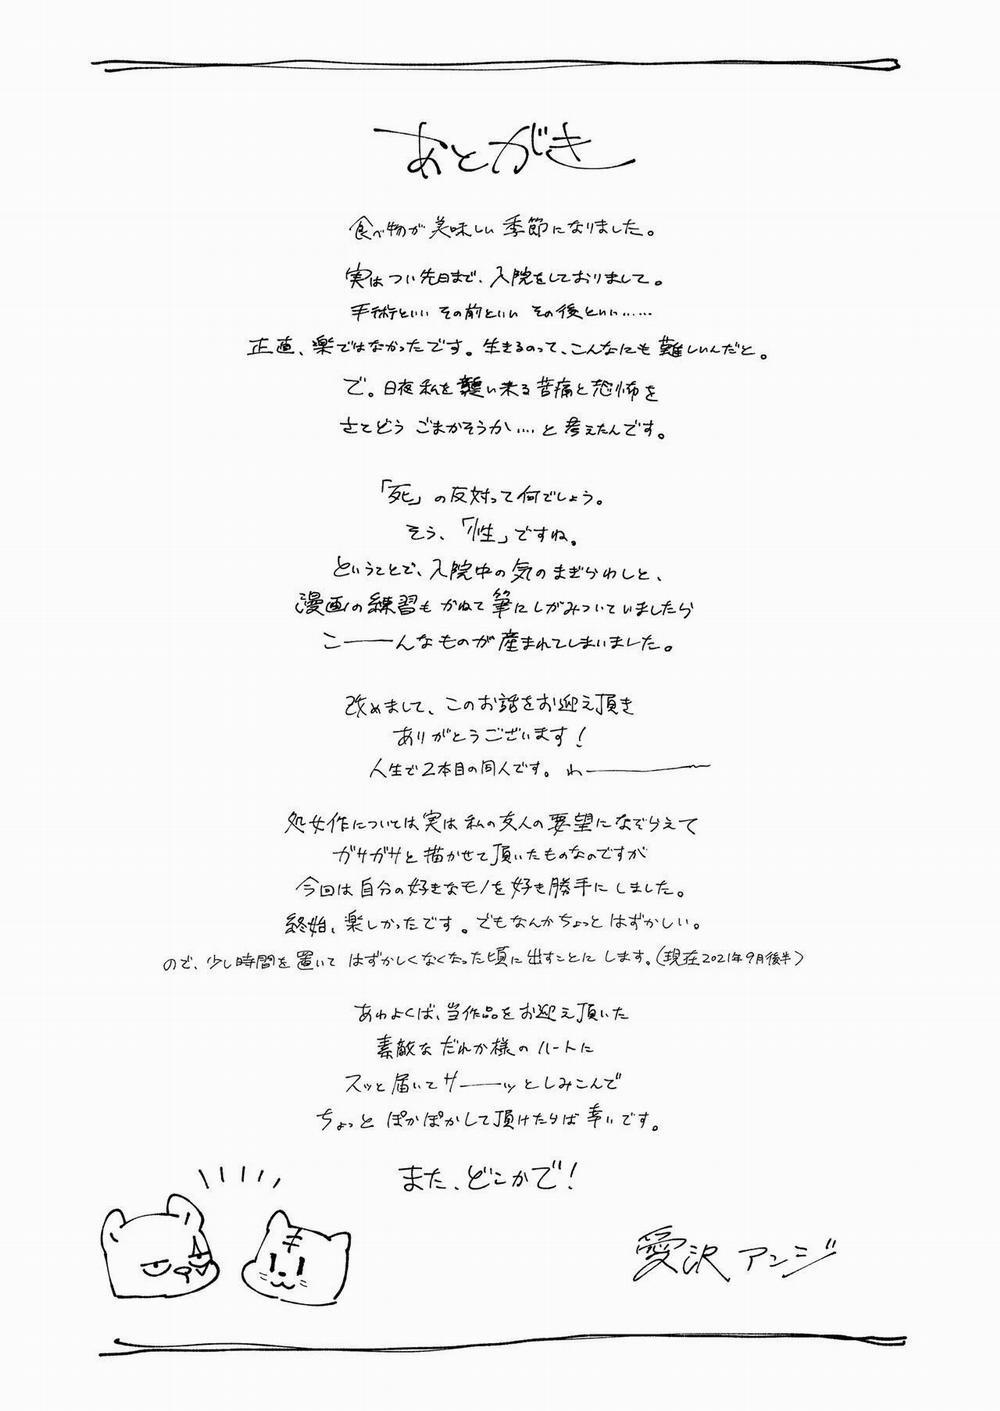 あとがき
食べ物が美味しい季節になりました。
実はつい先日まで、入院をしておりまして。
手術といい その前といい その後といい……
正直、楽ではなかったです。生きるのって、こんなにも難しいんだと。
で。日夜私を襲い来る苦痛と恐怖を
さてどう ごまかそうか…と考えたんです。
「死」の反対って何でしょう。
そう、「性」ですね。
ということで、入院中の気のまぎらわしと、
漫画の練習もかねて筆にしがみついていましたら
こ──んなものが産まれてしまいました。
改めまして、このお話をお迎え頂き
ありがとうございます！
人生で2本目の同人です。わ────
処女作については実は私の友人の要望になぞらえて
ガサガサと描かせて頂いたものなのですが
今回は自分の好きなモノを好き勝手にしました。
終始、楽しかったです。でもなんかちょっとはずかしい。
ので、少し時間を置いて はずかしくなくなった頃に出すことにします。(現在2021年9月後半)
あわよくば、当作品をお迎え頂いた
素敵なだれか様のハートに
スッと届いてサ──ッとしみこんで
ちょっと ぽかぽかして頂けたりば幸いです。
また、どこかで！
愛沢 アンジ